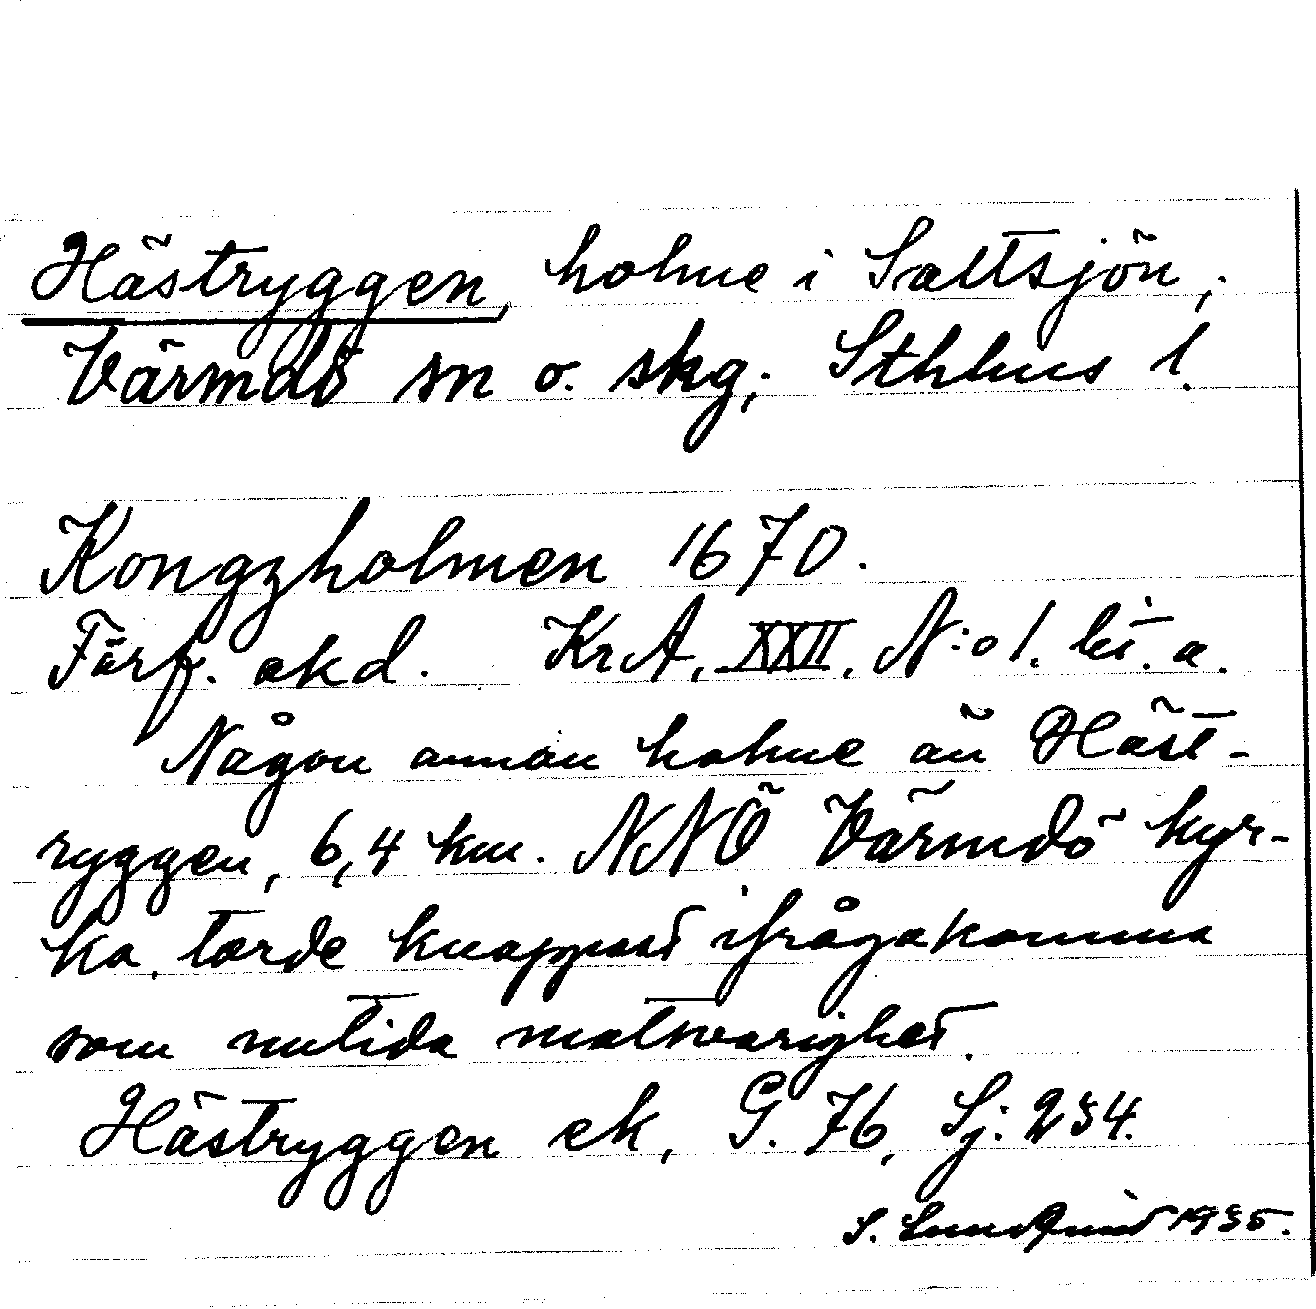 Hästryggen, holme i Saltsjön,
Värmdö sn o. skg, Sthlms l.
Kongzholmen 1670.
Förf. okd. KrA, XXII, N:o 1. lit. a.
Någon annan holme än Häst-
ryggen, 6,4 km. NNÖ Värmdö kyr-
ka, torde knappast ifrågakomma
som nutida motsvarighet.
Hästryggen ek, G. 76, Sj: 234.
S. Lundqvist 1935.